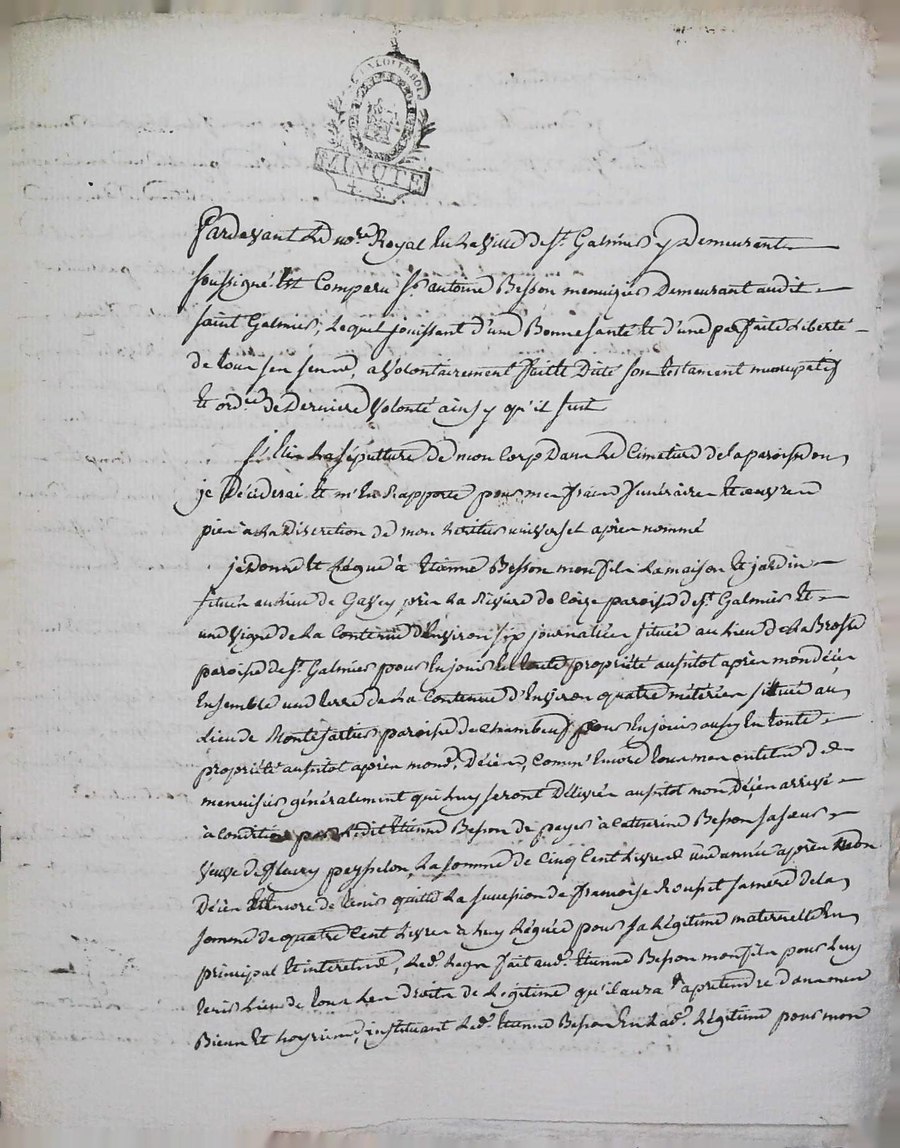 MINUTE
4. S.
Pardevant Le no.re Royal En La Ville de St. Galmier y Demeurant
soussigné Est Comparu sr. antoine Besson menuizier Demeurant audit
saint Galmier, Lequel jouissant d'une Bonne santé Et d'une parfaite Liberté
de tour ses sens, a Volontairement fait Et Dicté son testament nuncupatif
Et ord.ce de Derniere Volonté ainsy qu'il suit
J'Elis La sépulture de mon Corp Dans Le Cimetiere de la paroisse ou
je Déciderai Et m'En Rapporte pour mes fraix funéraires Et oeuvres
pies à La Discretion de mon héritier universel après nommé
je Donne Et Légue à Etienne Besson mon fils La maison Et jardin
situés au Lieu de près La Riviere de Coize paroisse de St. Galmier Et
une Vigne de La Contenue d'Environ six journalées située au Lieu de La Brosse
paroisse de St. Galmier pour En jouir En toute propriété aussitot après mon décès
Ensemble une terre de La Contenue d'Environ quatre métérées située au
Lieu de paroisse de Chambeuf pour En jouir aussy En toute
propriété aussitot après mond. Décès, Comm'Encore tous mes outils de
menuisier généralement qui Luy seront Délivrés aussitot mon Décès arrivé
à Condition par Ledit Etienne Besson de payer à Catherine Besson sa soeur
Veuve de fleury peysselon, La somme de Cinq Cent Livres une année après mon
Décès Et Encore de tenir quitte La succession de françoise sa mere de la
somme de quatre Cent Livres à Luy Léguée pour sa Légitime maternelle En
principal Et interets, Led. Legs fait aud. Etienne Besson mon fils pour Luy
tenir Lieu de tous Les Droits de Légitime qu'il aura à pretendre dans mes
Biens Et hoyrie, instituant Led. Etienne Besson En Lad. Légitime pour mon